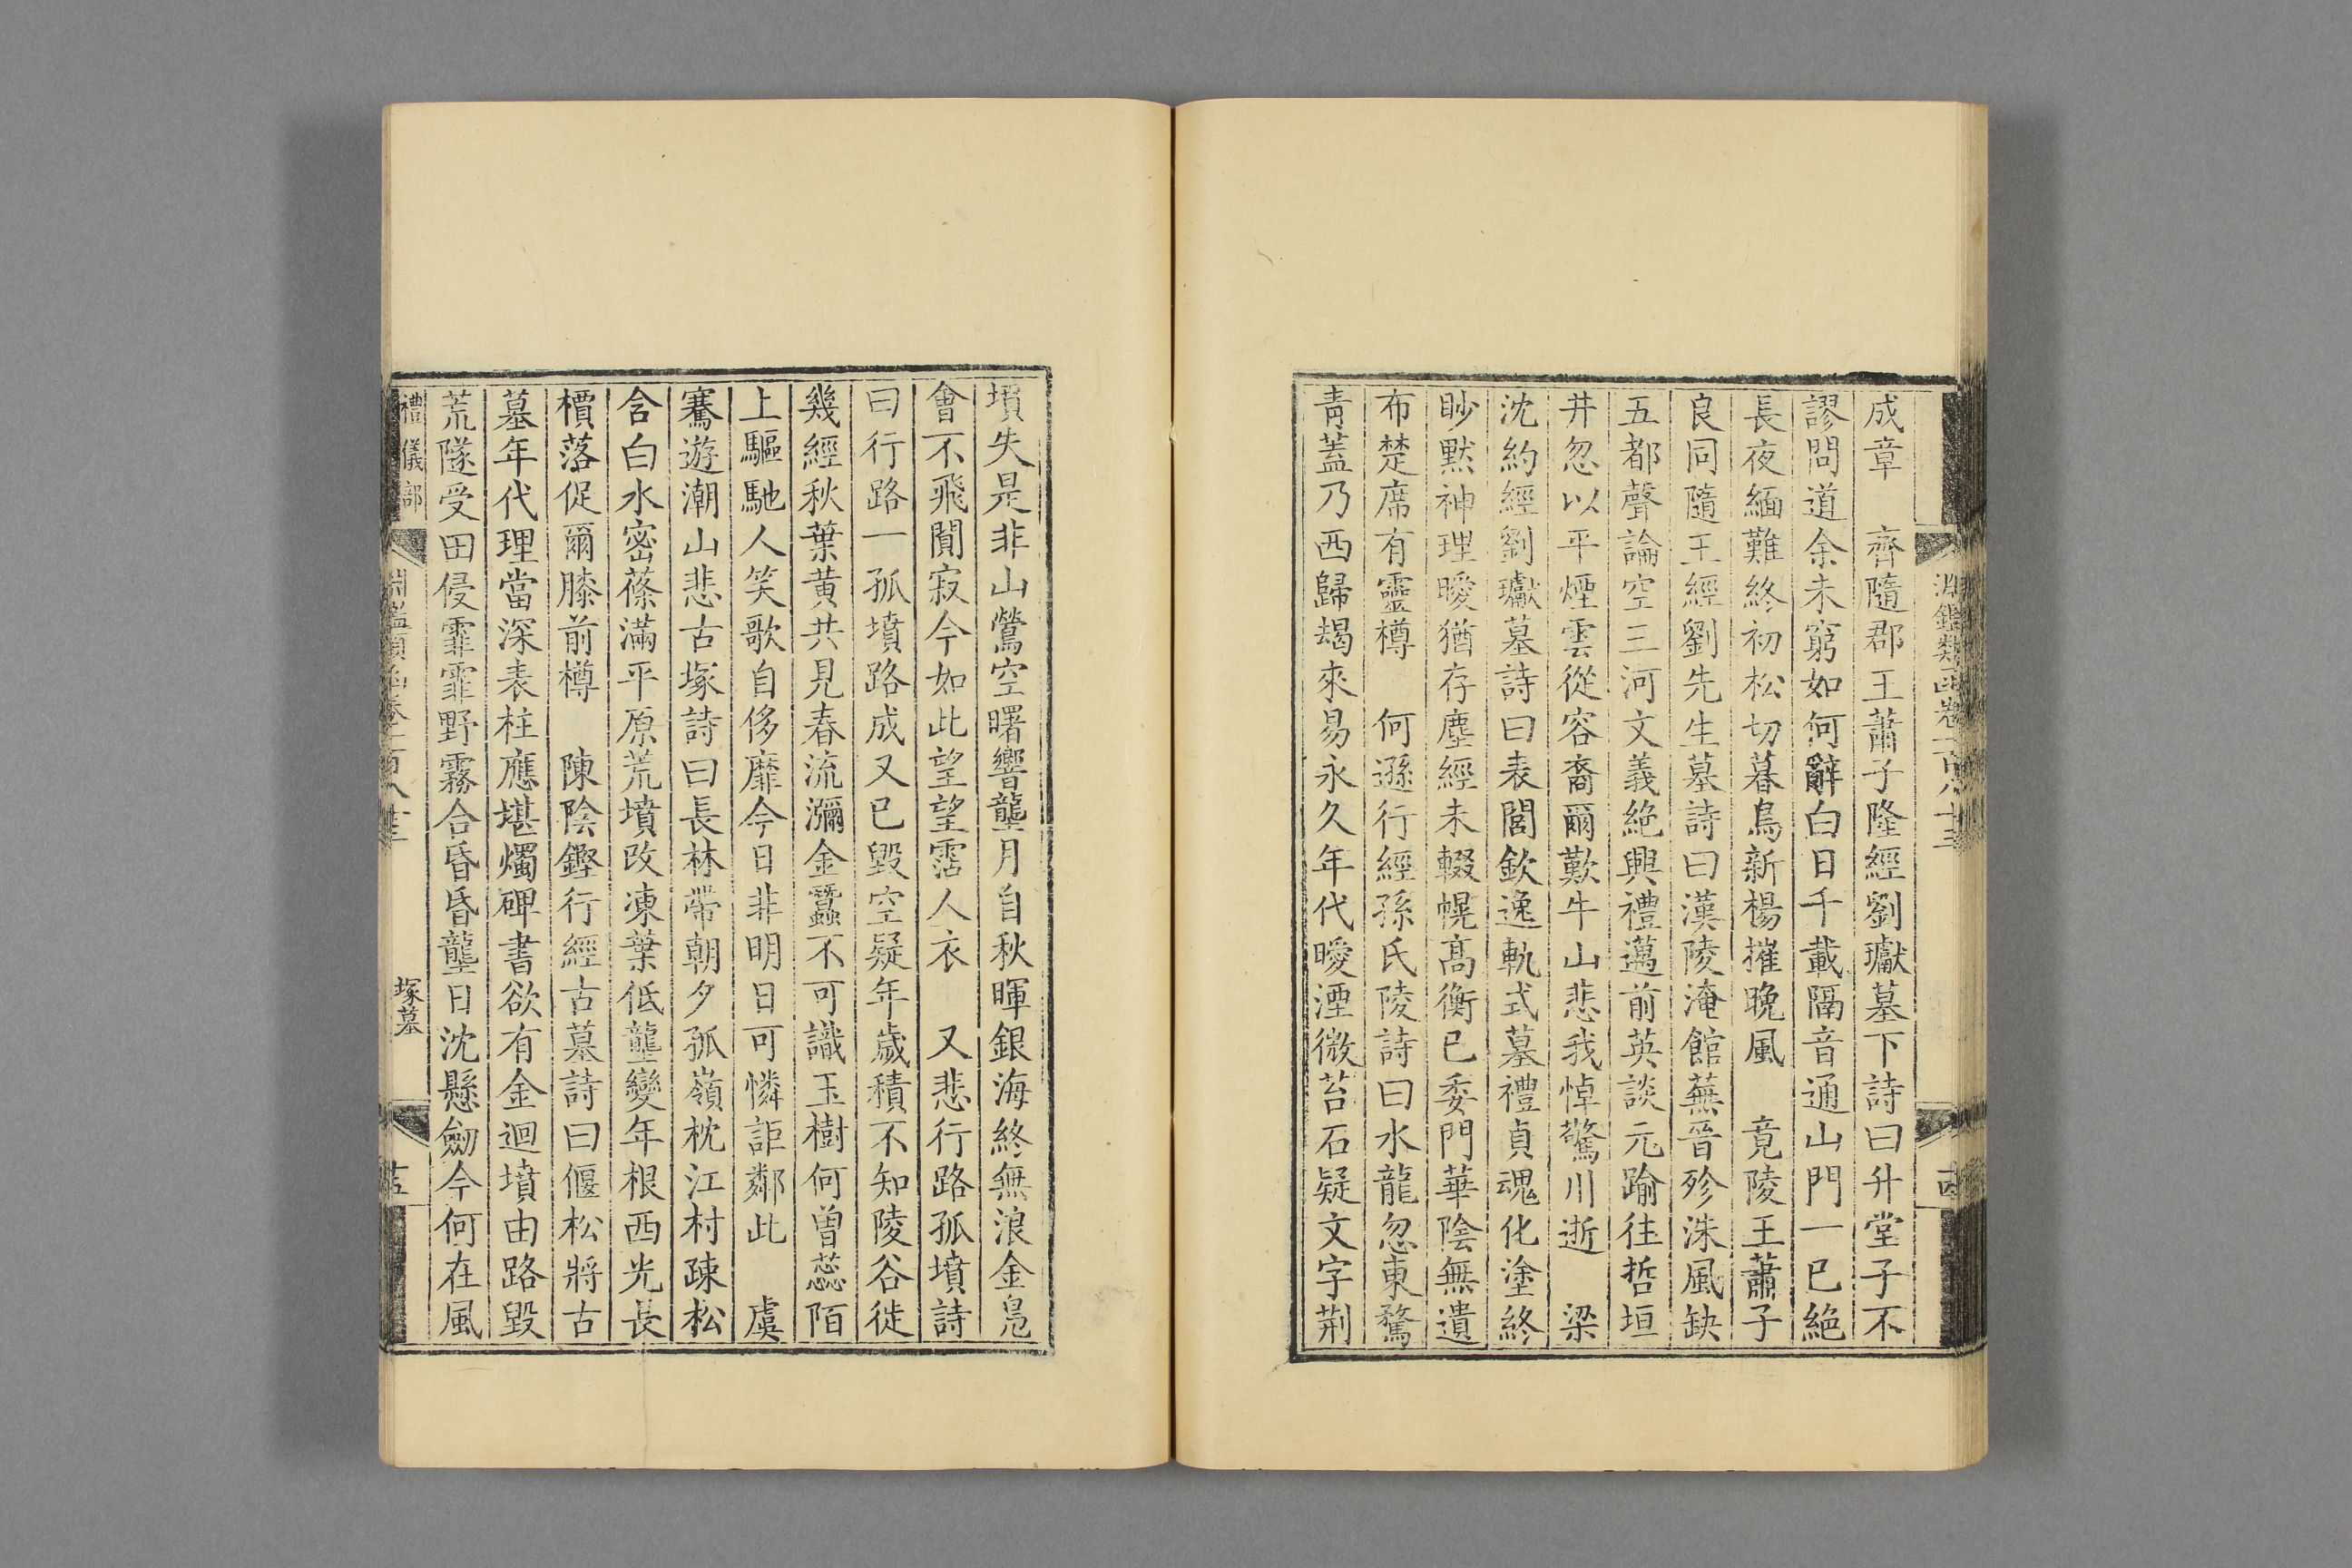 淵鑑類函卷一百八十三
成章　齊隨郡王蕭子隆經劉瓛墓下詩曰升堂子不
謬問道余未窮如何辭白日千載隔音通山門一巳絕
長夜緬難終初松切暮鳥新楊摧晚風　竟陵王蕭子
良同隨王經劉先生墓詩曰漢陵淹館蕪晉殄洙風缺
五都聲論空三河文義絶興禮邁前英談元踰往哲垣
井忽以平煙雲從容裔爾歎牛山悲我悼驚川逝　梁
沈約經劉瓛墓詩曰表閭欽逸軌式墓禮貞魂化塗終
眇默神理曖猶存塵經未輟幌高衡已委門華陰無遺
布楚席有靈樽　何遜行經孫氏陵詩曰水龍忽東騖
青蓋乃西歸朅來易永久年代曖湮微苔石疑文字荆
墳失是非山鶯空曙響壟月自秋暉銀海終無浪金鳧
會不飛闃寂今如此望望霑人衣　又悲行路孤墳詩
曰行路一孤墳路成又已毀空疑年歲積不知陵谷徙
幾經秋葉黄共見春流瀰金蠶不可識玉樹何曾蕊陌
上驅馳人笑歌自侈靡今日非明日可憐詎鄰此　虞
騫遊潮山悲古塚詩曰長林帶朝夕孤嶺枕江村疎松
含白水密蓧滿平原荒墳改凍葉低壟變年根西光長
檟落促爾膝前樽　陳陰鏗行經古墓詩曰偃松將古
墓年代理當深表柱應堪燭碑書欲有金迴墳由路毀
荒隧受田侵霏霏野霧合昏昏壟日沈懸劒今何在風
禮儀部　淵鑑類函卷一百八十三　塚墓